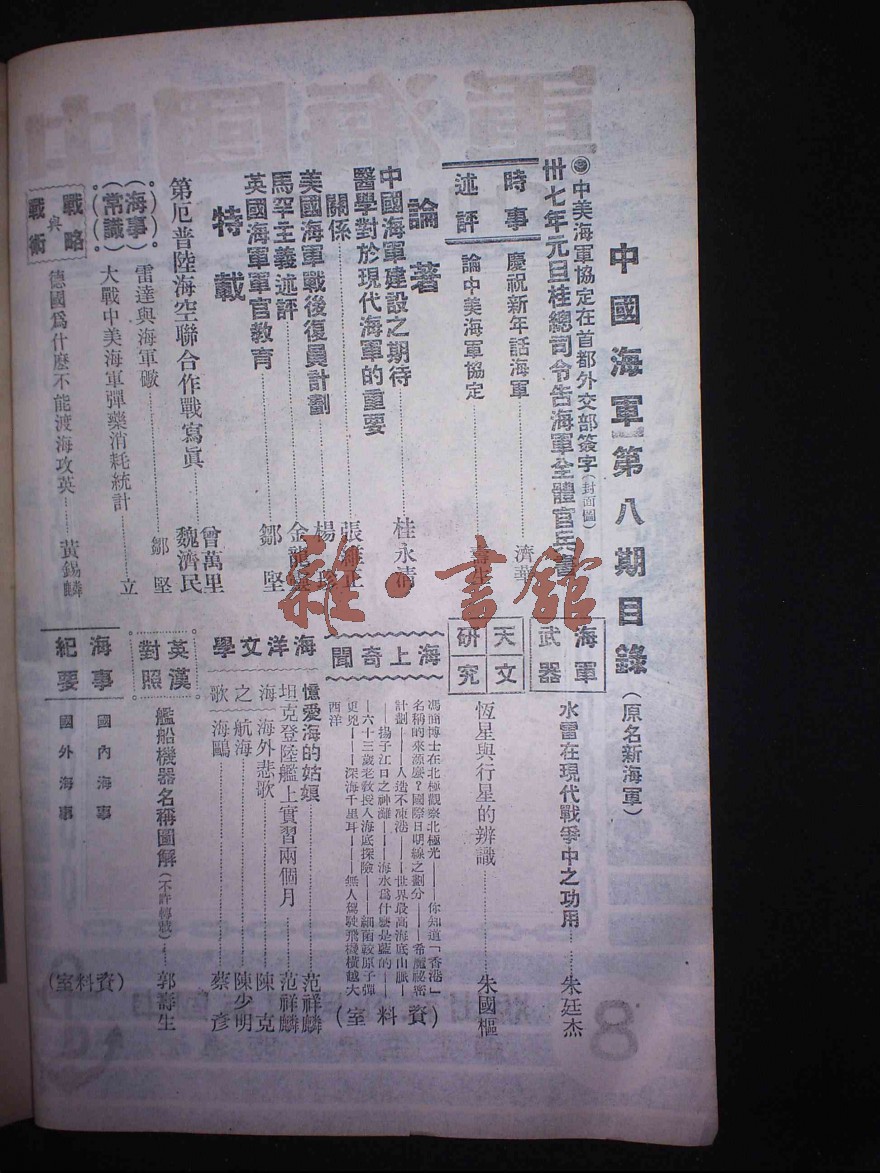 中國海軍第八期目錄(原名新海軍)
中美海軍協定在首都外交部簽字(封面圖)
卅七年元旦桂總司令告海軍全體官兵書
時事述評
慶祝新年話海軍……濟華
論中美海軍協定……
論著
中國海軍建設之期待……桂永清
醫學對於現代海軍的重要
關係……張維正
美國海軍戰後復員計劃……楊珍
馬罕主義述評……金龍靈
英國海軍軍官教育……鄒堅
特載
第厄普陸海空聯合作戰寫眞……曾萬里 魏濟民
(海事)
(常識)
雷達與海軍礮……鄒堅
大戰中美海軍彈藥消耗統計……立
戰略與戰術
德國爲什麼不能渡海攻英……黃錫麟
海軍武器
水雷在現代戰爭中之功用……朱廷杰
天文研究
恆星與行星的辨識……朱國樞
海上奇聞
馮爾博士在北極觀察北極光——你知道「香港」
名稱的來源麼?國際日明線之劃分——希魔祕密
計劃——人造不凍港——世界最高海底山脈—
—揚子江口之神灘——海水爲什麼是藍的—
—六十三歲老教授入海底探險——細菌較原子彈
更兇——深海千里耳——無人駕駛飛機橫越大
西洋
(資料室)
海洋文學
憶愛海的姑娘……范祥麟
坦克登陸艦上實習兩個月……范祥麟
海外悲歌……陳克
海之歌
航海……陳少明
海鷗……蔡彥
英漢對照
艦船機器名稱圖解(不許轉載)……郭壽生
海事紀要
國內海事
國外海事
(資料室)
雜·書館
8